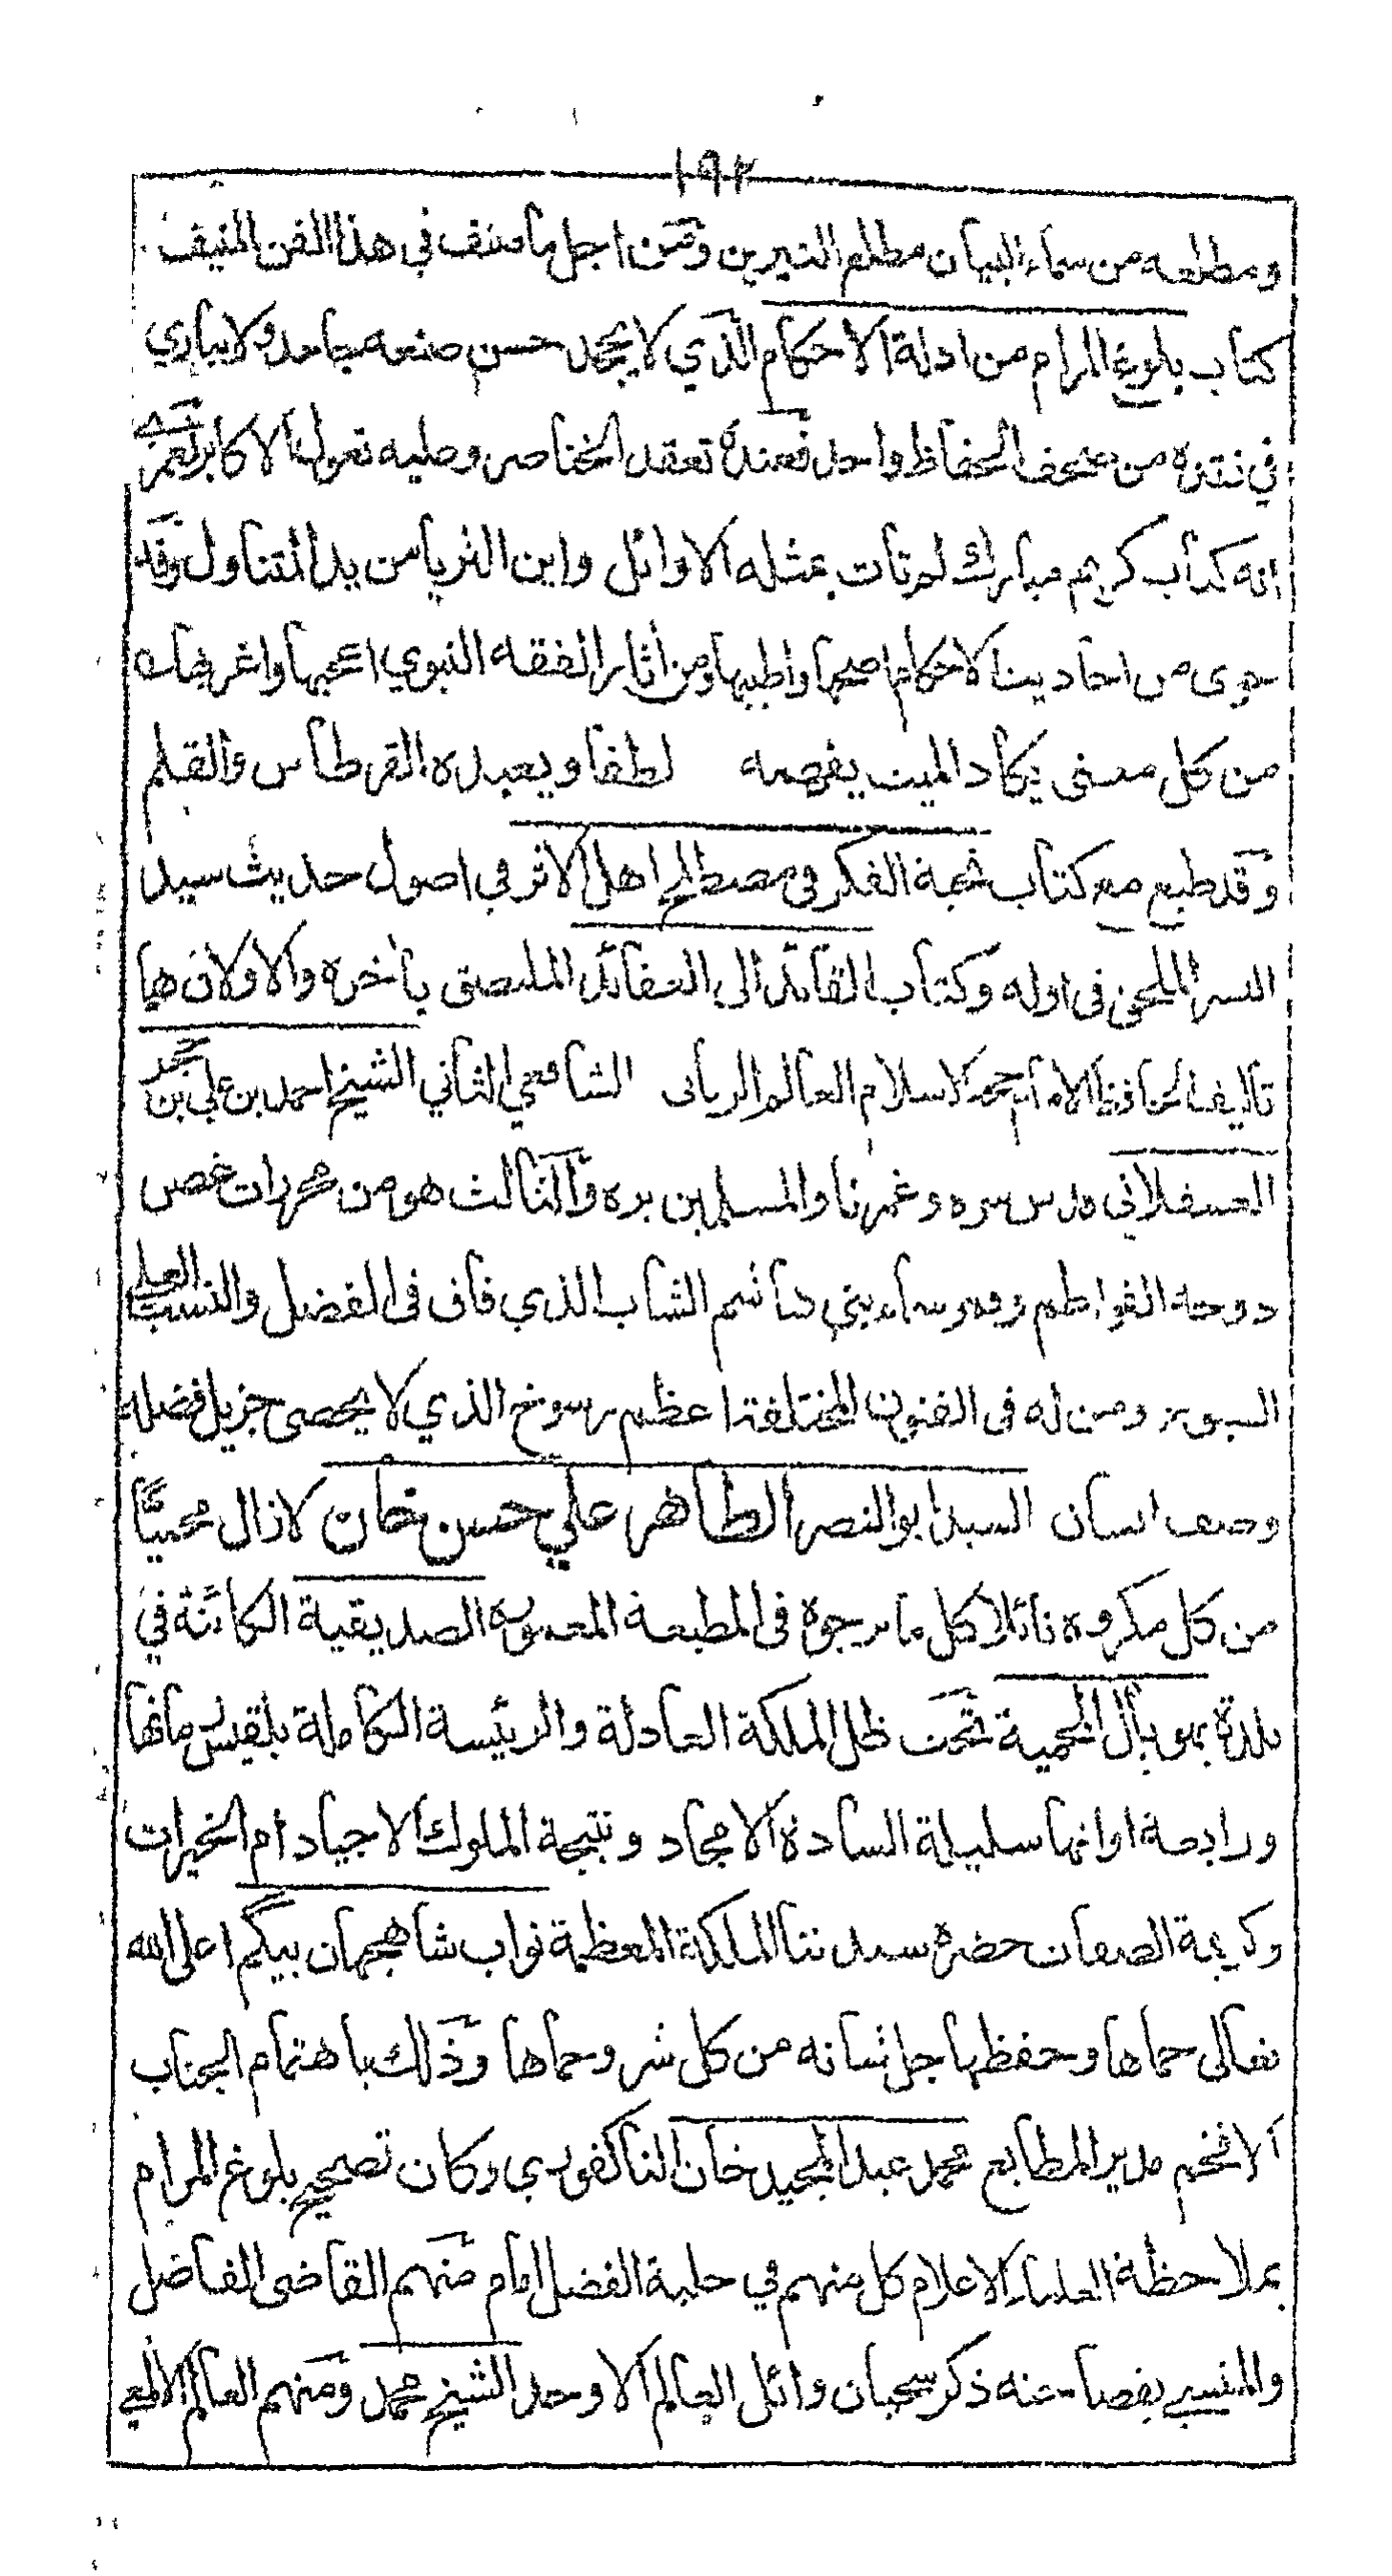 ١٩٢
ومطلعه من سماء البيان مطلع النيرين ومن اجل ما صنف في هذا الفن المنيف
كتاب بلوغ المرام من ادلة الاحكام الذي لا يجحد حسن صنعه جاحد ولا يباري
في نقزه من صحف الحفاظ واحد فعنده تعقد الخناصر وعليه تعولها الاكابر لعمري
انه كتاب كريم مبارك لم تات بمثله الاوائل واين الثريا من يد المتناول وقد
حوى من احاديث الاحكام اصحها واطيبها ومن اثار الفقه النبوي اعجبها واغربها
من كل معنى يكاد الميت يفهمه لطفا ويعبده القرطاس والقلم
وقد طبع معه كتاب نخبة الفكر في مصطلح اهل الاثر في اصول حديث سيد
البشر الملحق في اوله وكتاب القائد الى العقائد الملصق باخره والاولان هما
تاليف الحافظ الامام حجة الاسلام العالم الرباني الشافعي الثاني الشيخ احمد بن علي بن حجر
العسقلاني قدس سره وغمرنا والمسلمين بره والثالث هو من محررات غصن
دوحة الفواطم وقمر سماء بني هاشم الشاب الذي فاق في الفضل والنسب العلي
الشيوخ ومن له في الفنون المختلفة اعظم رسوخ الذي لا يحصي جزيل فضله
وصف لسان السيد ابو النصر الطاهر علي حسن خان لا زال محميًّا
من كل مكروه نائلا كل ما يرجوه في المطبعة المعمورة الصديقية الكائنة في
بلدة بهوبال المحمية تحت ظل الملكة العادلة والرئيسة الكاملة بلقيس زمانها
ورابعة اوانها سليلة السادة الامجاد ونتيجة الملوك الاجياد ام الخيرات
وكريمة الصفات حضرة سيدتنا الملكة المعظمة نواب شاهجهان بيگم اعلى الله
تعالى حماها وحفظها جل شانه من كل شر وحماها وذلك باهتمام الجناب
الافخم مدير المطابع محمد عبد المجيد خان الناكفوري وكان تصحيح بلوغ المرام
بملاحظة العلماء الاعلام كل منهم في حلبة الفضل امام منهم القاضي الفاضل
والمنسي بفصاحته ذكر سحبان وائل العالم الاوحد الشيخ محمد ومنهم العالم الالمعي